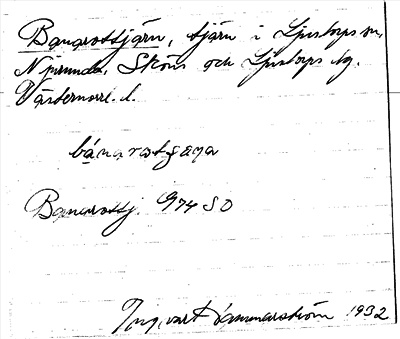 Banarottjärn, tjärn i Ljustorps sn,
Njurunda, Sköns och Ljustorps tg.
Västernorrl. l.
bánarotʃæṇa
Banarottj. G 74 SO
Ingvart Hammarström 1932